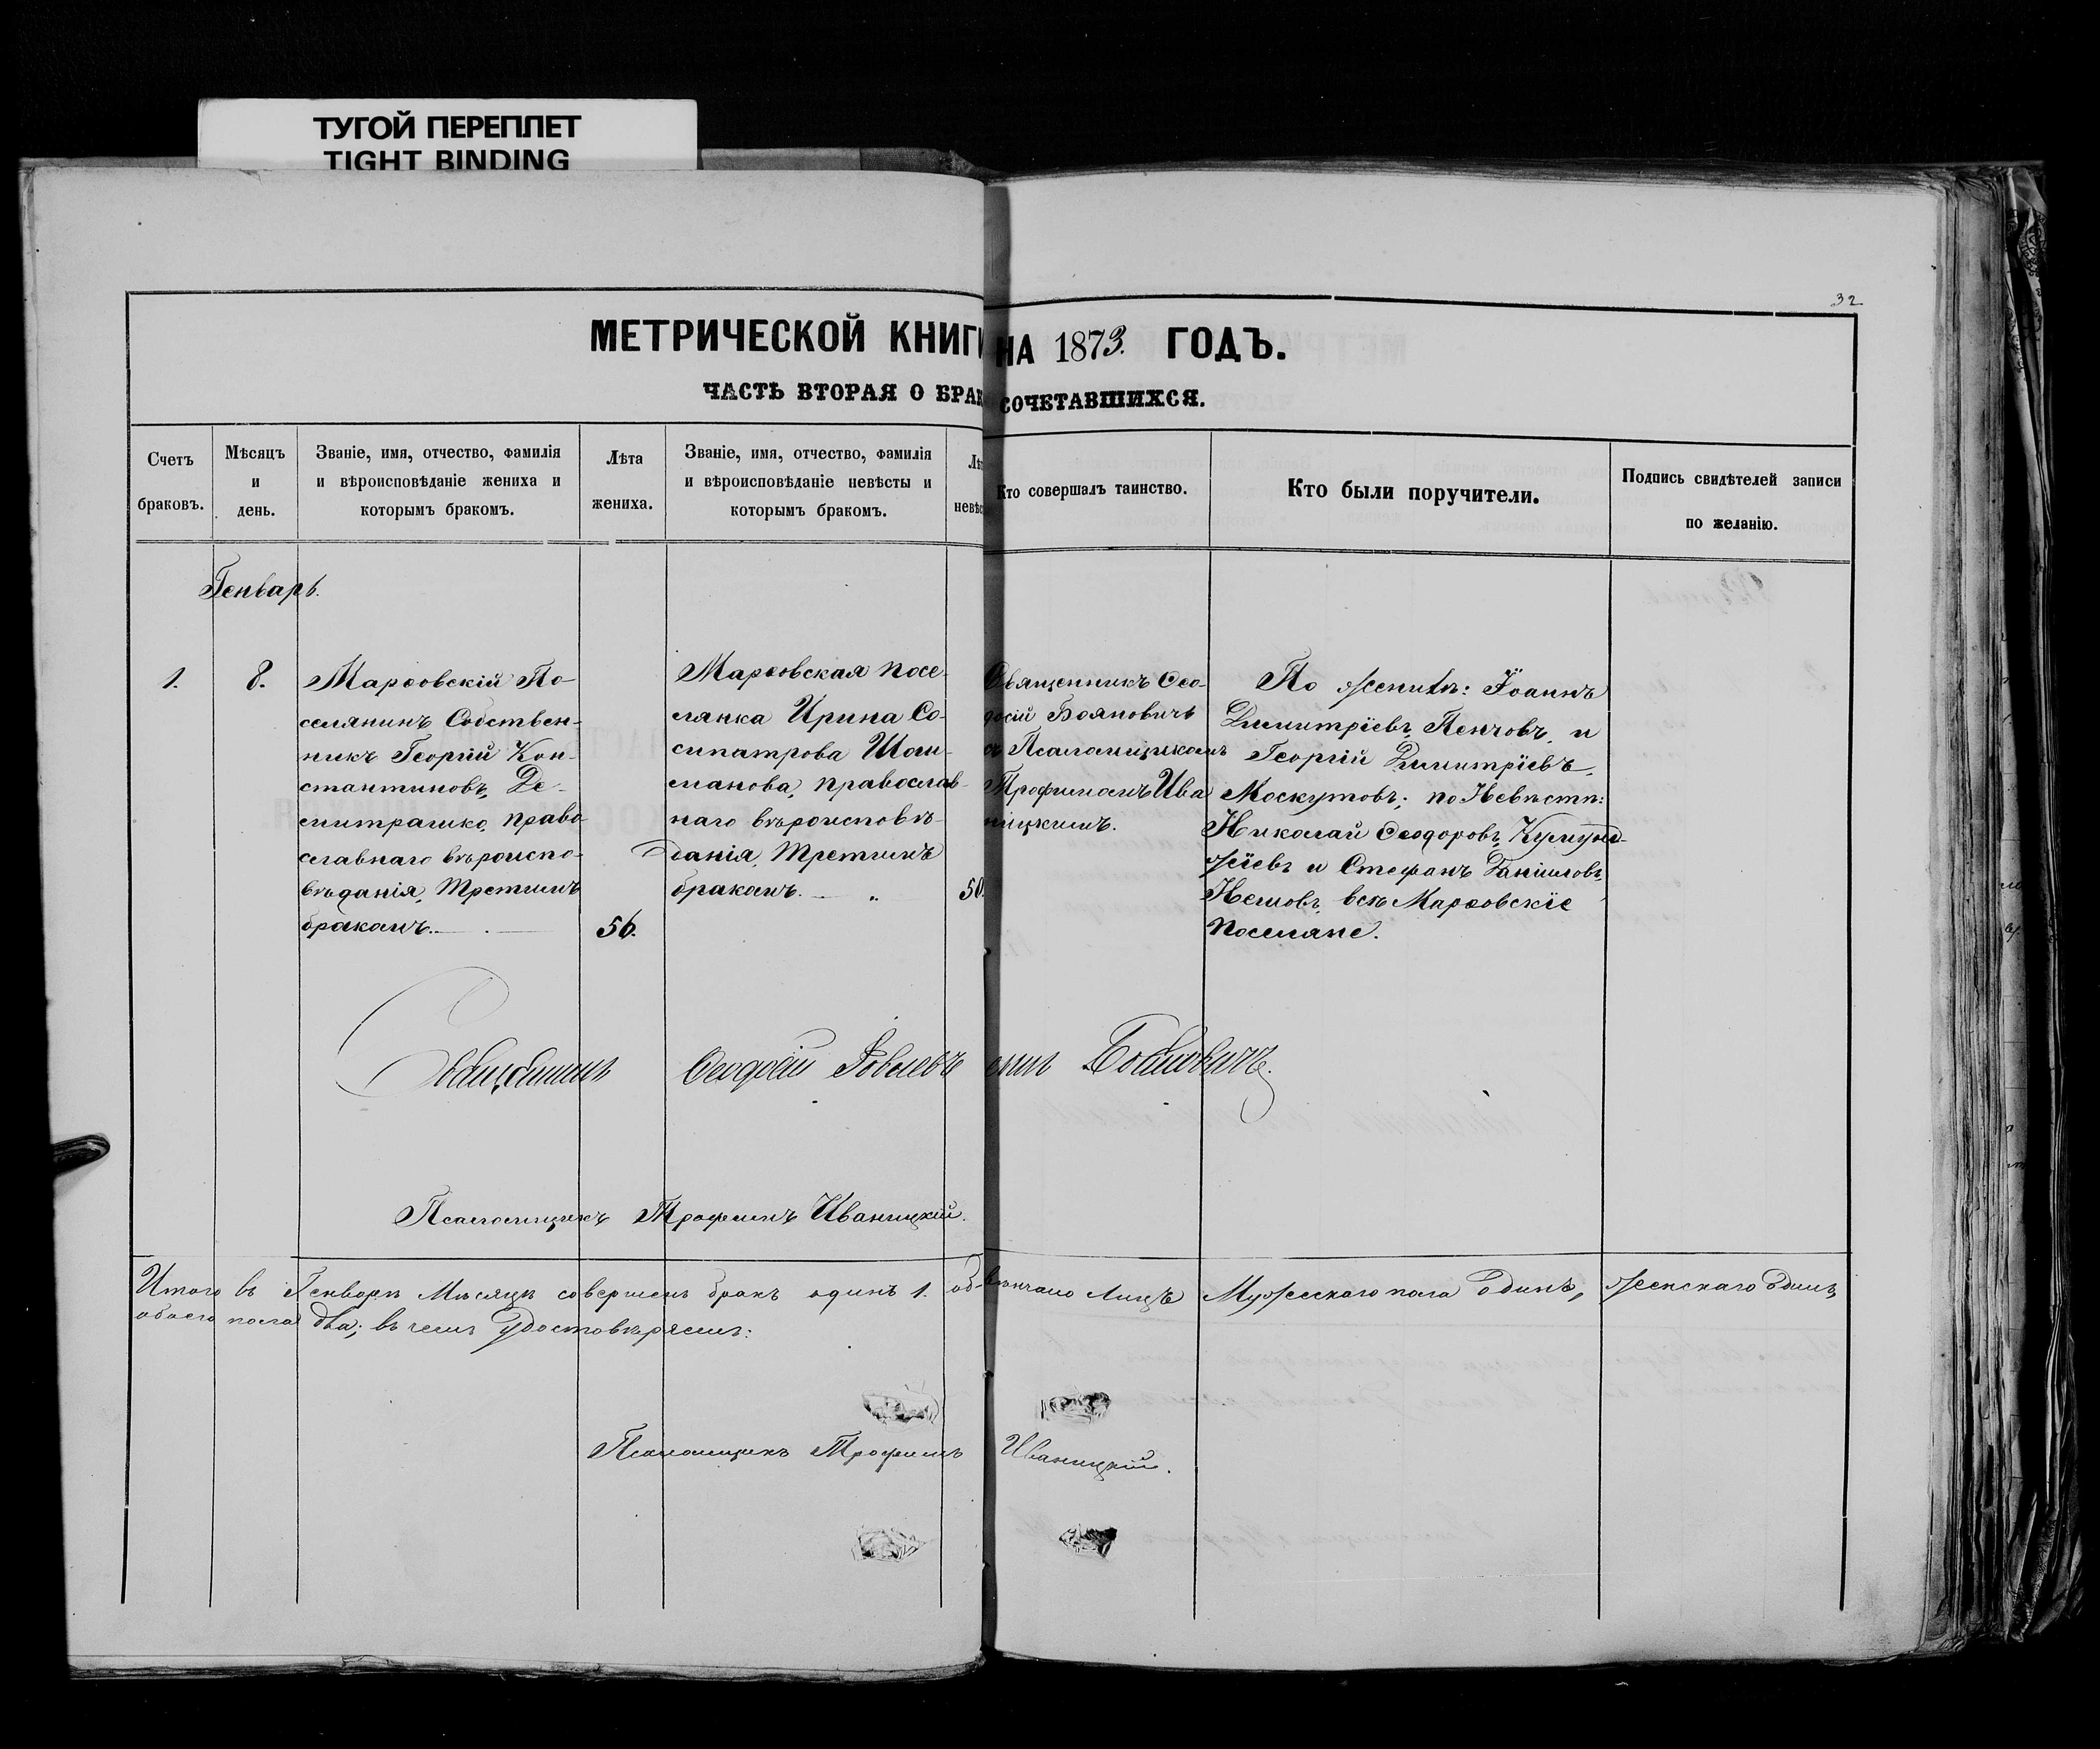 ТУГОЙ ПЕРЕПЛЕТ
TIGHT BINDING
32
МЕТРИЧЕСКОЙ КНИГИ НА 1873. ГОДЪ.
ЧАСТЬ ВТОРАЯ О БРАКОСОЧЕТАВШИХСЯ.
Счетъ
браковъ.
Мѣсяцъ
и
день.
Званіе, имя, отчество, фамилія
и вѣроисповѣданіе жениха и
которымъ бракомъ.
Лѣта
жениха.
Званіе, имя, отчество, фамилія
и вѣроисповѣданіе невѣсты и
которымъ бракомъ.
Лѣт
невѣс
Кто совершалъ таинство.
Кто были поручители.
Подпись свидѣтелей записи
по желанію.
Генварь.
1.
8.
Марѳовскій По-
селянинъ Собствен-
никъ Георгій Кон-
стантиновъ, Де-
митрашко, право-
славнаго вѣроиспо-
вѣданія, Третимъ
бракомъ.
56.
Марѳовская посе-
лянка Ирина Со-
сипатрова Шош-
манова, православ-
наго вѣроисповѣ-
данія, Третимъ
бракомъ.
50.
Священникъ Ѳео-
досій Бояновичъ
съ Псаломщикомъ
Трофимомъ Ива
ницкимъ.
По женихѣ: Іоаннъ
Димитріевъ, Пенчовъ, и
Георгій Димитріевъ,
Москутовъ; по Невѣстѣ:
Николай Ѳеодоровъ,
жіевъ и Стефанъ Даниловъ,
Немовъ, всѣ Марѳовскіе
Поселяне.
Священникъ Ѳеодосій Бояновичъ.
Псаломщикъ Трофимъ Иваницкій.
Итого въ Генварѣ Мѣсяцѣ совершенъ бракъ одинъ 1. обвѣнчано Лицъ Мужескаго пола Одинъ, женскаго одна,
обоего пола два; въ чемъ Удостовѣряемъ:
Псаломщикъ Трофимъ Иваницкій.